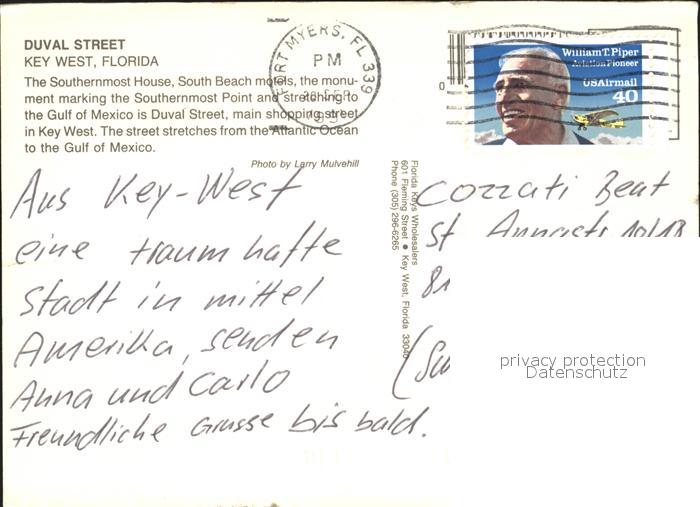 DUVAL STREET
KEY WEST, FLORIDA
The Southernmost House, South Beach motels, the monu-
ment marking the Southernmost Point and stretching to
the Gulf of Mexico is Duval Street, main shopping street
in Key West. The street stretches from the Atlantic Ocean
to the Gulf of Mexico.
Photo by Larry Mulvehill
FORT MYERS, FL 339
PM
William T. Piper
Aviation Pioneer
USAirmail
40
Aus Key-West
eine traumhafte
Stadt in mittel
Amerika, senden
Anna und Carlo
Freundliche Grüsse bis bald.
Florida Keys Wholesalers
601 Fleming Street ● Key West, Florida 33040
Phone (305) 296-6265
Cozzati Beat
St.
privacy protection
Datenschutz